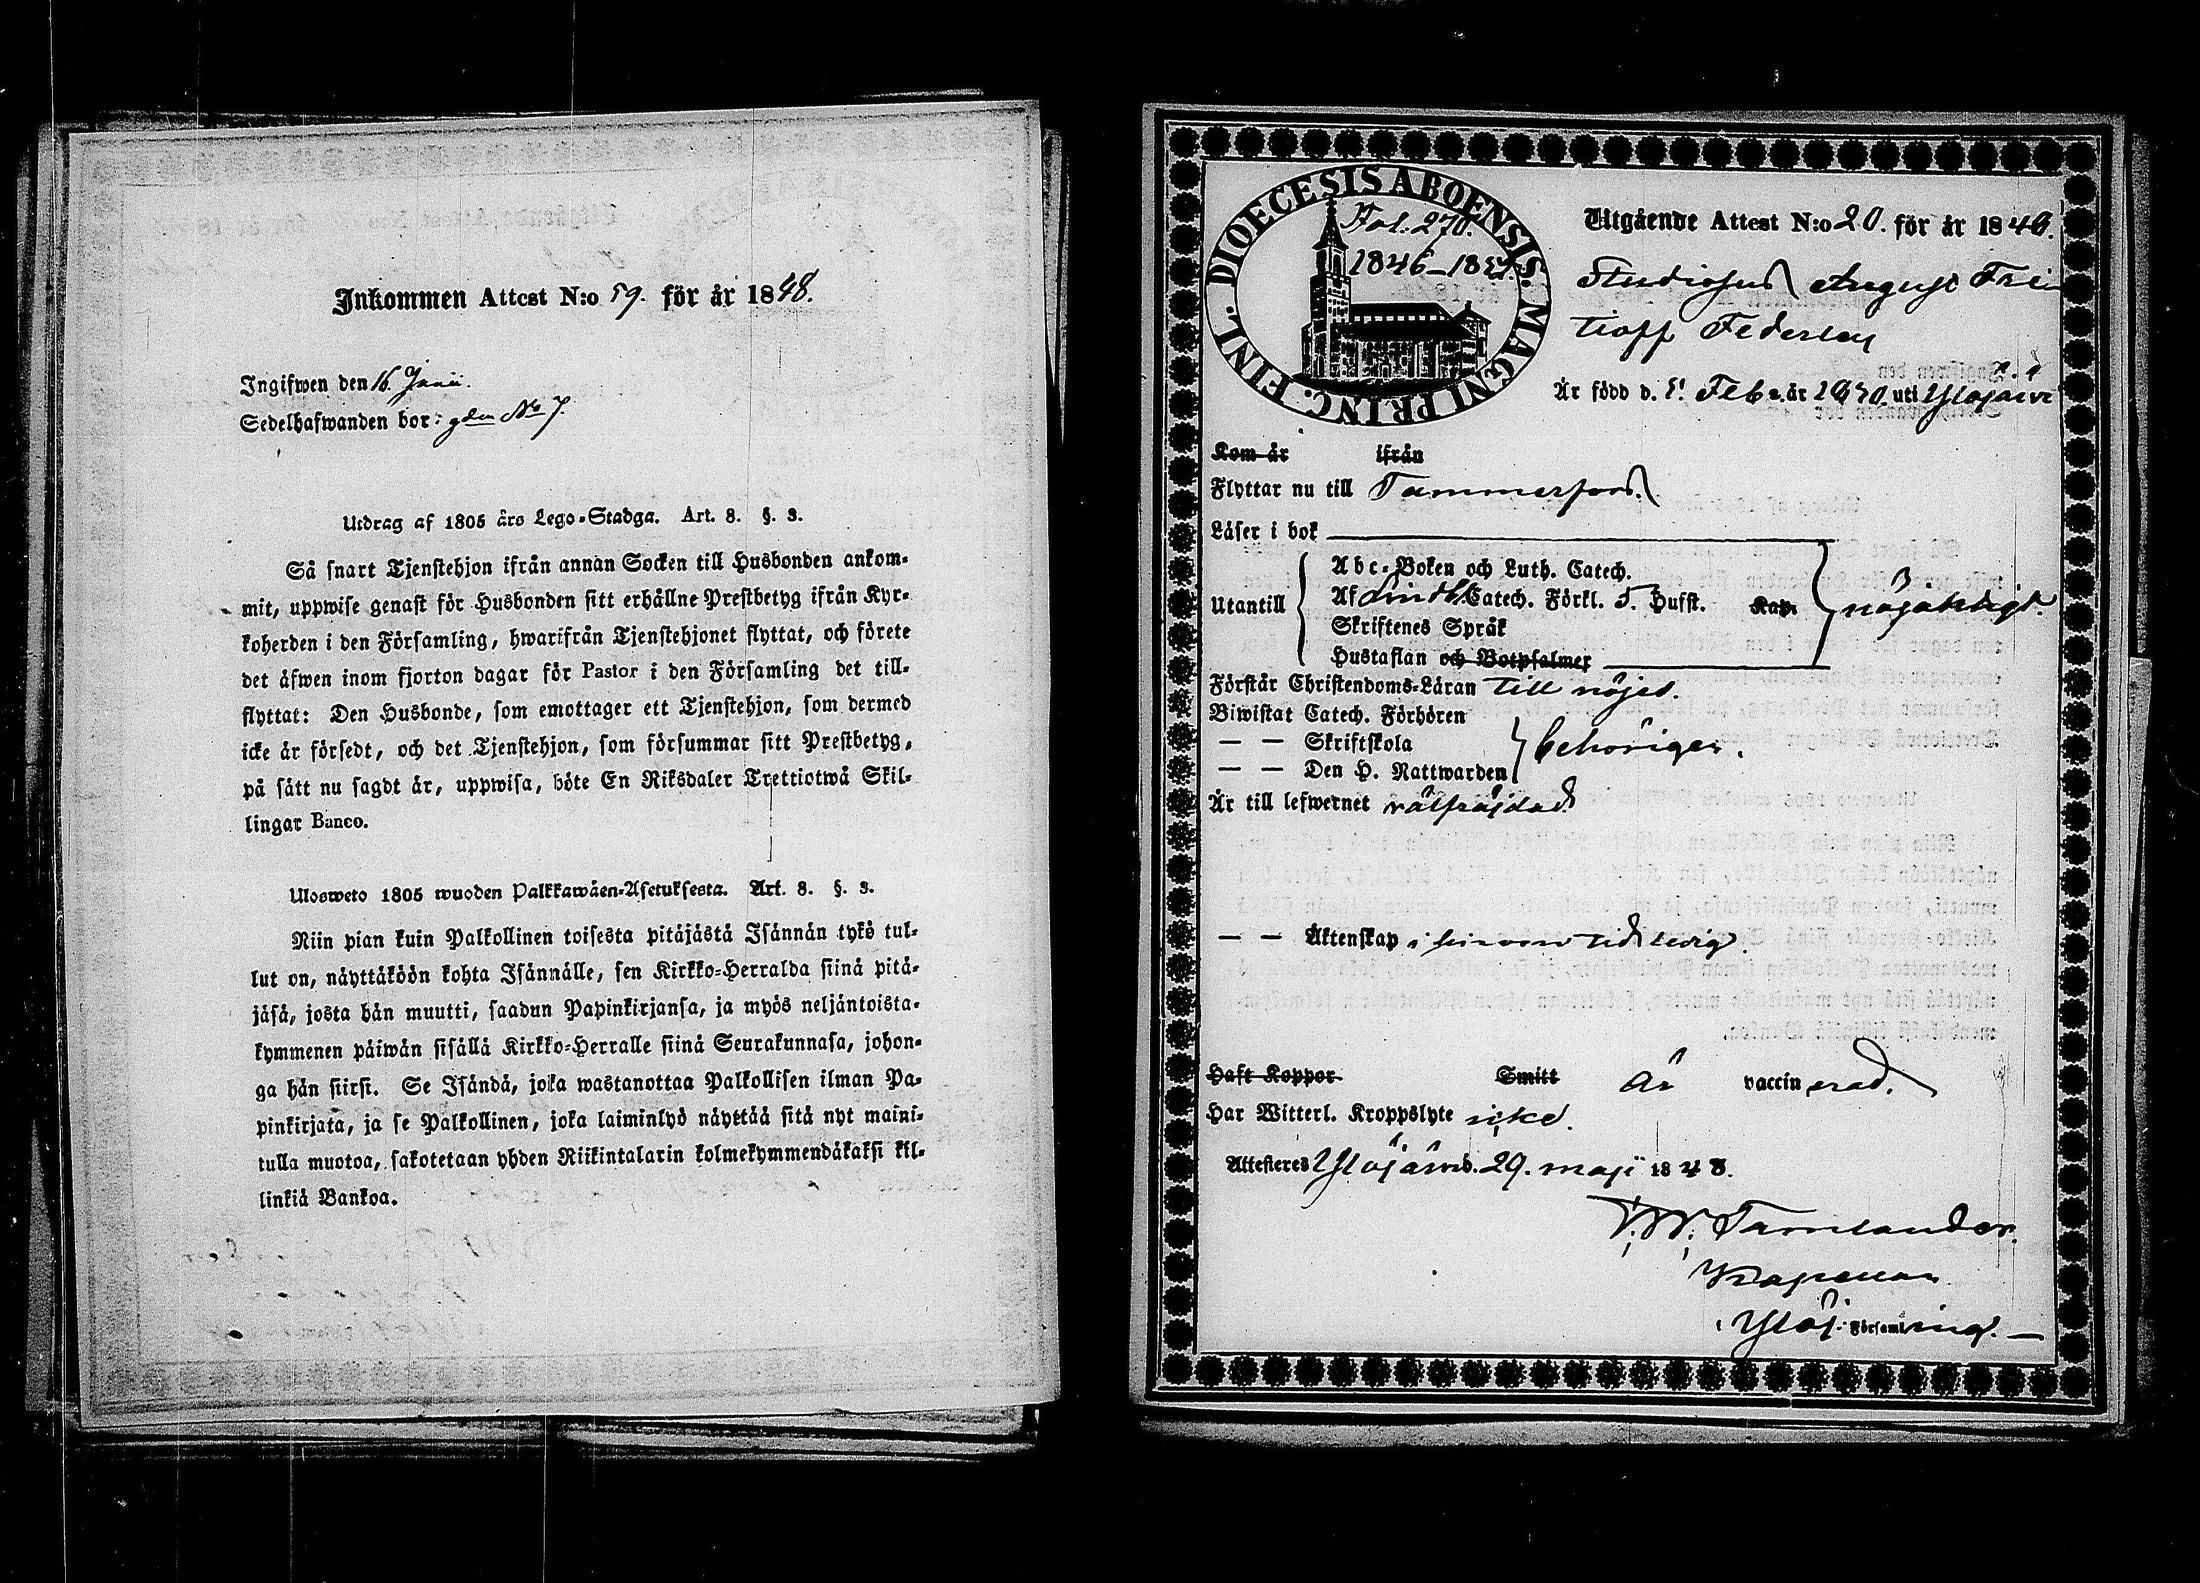 Inkommen Attest N:o 59. för år 1848.
Ingifwen den 16 Junii.
Sedelhafwanden bor: gden No 7.
Utdrag af 1805 års Lego-Stadga. Art. 8. §. 3.
Så snart Tjenstehjon ifrån annan Socken till Husbonden ankom-
mit, uppwise genast för Husbonden sitt erhållne Prestbetyg ifrån Kyr-
koherden i den Församling, hwarifrån Tjenstehjonet flyttat, och förete
det äfwen inom fjorton dagar för Pastor i den Församling det till-
flyttat: Den Husbonde, som emottager ett Tjenstehjon, som dermed
icke är försedt, och det Tjenstehjon, som försummar sitt Prestbetyg,
på sätt nu sagdt är, uppwisa, böte En Riksdaler Trettiotwå Skil-
lingar Banco.
Ulosweto 1805 wuoden Palkkawäen-Asetuksesta. Art. 8. §. 3.
Niin pian kuin Palkollinen toisesta pitäjästä Isännän tykö tul-
lut on, näyttäköön kohta Isännälle, sen Kirkko-Herralda siinä pitä-
jäsä, josta hän muutti, saadun Papinkirjansa, ja myös neljäntoista-
kymmenen päiwän sisällä Kirkko-Herralle siinä Seurakunnasa, johon-
ga hän siirsi. Se Isändä, joka wastanottaa Palkollisen ilman Pa-
pinkirjata, ja se Palkollinen, joka laiminlyö näyttää sitä nyt maini-
tulla muotoa, sakotetaan yhden Riikintalarin kolmekymmendäkaksi kil-
linkiä Bankoa.
DIOECESIS ABOENSIS. MAGNI PRINC. FINL.
Fol. 270.
1846-1851
Utgående Attest N:o 20. för år 1848.
Studiosus August Fri
tioff Federley
Är född d. 5. Feb. år 1830. uti Ylöjärvi
Kom år ifrån
Flyttar nu till Tammerfors.
Läser i bok
Utantill
Abc-Boken och Luth. Catech.
Af Catech. Förkl. 5. Hufst. Kap.
Skriftenes Språk
Hustaflan och Botpsalmer
nöjaktigt.
Förstår Christendoms-Läran till nöjes.
Biwistat Catech. Förhören
— — Skriftskola
— — Den H. Nattwarden
behörigen.
Är till lefwernet välfräjdad
— — Äktenskap i hinnan tid ledig.
Haft Koppor Smitt är vaccinerad.
Har Witterl. Kroppslyte icke.
Attesteres Ylöjärvi d. 29. maji 1848.
Kapellan
i Ylöj. Församling. —